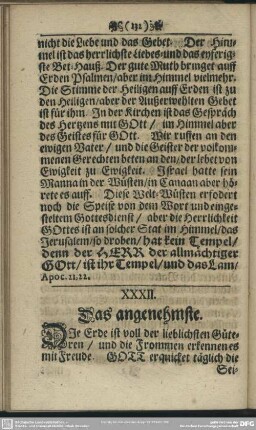 (232)
nicht die Liebe und das Gebet. Der Him-
mel ist das herrlichste Liebes- und das eyferig-
ste Bet-Hauß. Der gute Muth bringet auff
Erden Psalmen/ aber im Himmel vielmehr.
Die Stimme der Heiligen auff Erden ist zu
den Heiligen/ aber der Außerwehlten Gebet
ist für ihn. In der Kirchen ist das Gespräch
des Hertzens mit GOtt/ im Himmel aber
des Geistes für GOtt. Wir ruffen an den
ewigen Vater/ und die Geister der volkom-
menen Gerechten beten an den/ der lebet von
Ewigkeit zu Ewigkeit. Israel hatte sein
Manna in der Wüsten/ in Canaan aber hö-
rete es auff. Diese Welt-Wüsten erfodert
noch die Speise von dem Wort und einge-
steltem Gottesdienst/ aber die Herrlichkeit
GOttes ist an solcher Stat im Himmel/ das
Jerusalem/ so droben/ hat kein Tempel/
denn der HERR der allmächtiger
GOtt/ ist ihr Tempel/ und das Lam/
Apoc. 21. 22.
XXXII.
Das angenehmste.
DIe Erde ist voll der lieblichsten Güte
/ und die Frommen erkennen es
mit Freude. GOTT erquicket täglich die
Sei-
DFG